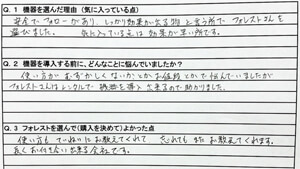 Q. 1 機器を選んだ理由（気に入っている点）
安全でフォローがあり、しっかり効果が出る物と言う所で、フォレストさんを
選びました。 気に入っている点は効果が早い所です。
Q. 2 機器を導入する前に、どんなことに悩んでいましたか？
使い方がむずかしくないかとかお値段とかで悩んでいましたが
フォレストさんはレンタルで機器を導入出来るので助かりました。
Q. 3 フォレストを選んで（購入を決めて）よかった点
使い方もていねいにお教えてくれて 忘れてもまたお教えてくれます。
長くお付き合い出来る会社です。